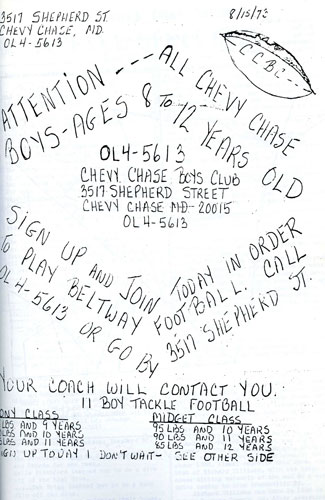 3517 SHEPHERD ST.
CHEVY CHASE, MD.
OL4-5613
8/15/73
CCBC
ATTENTION --- ALL CHEVY CHASE
BOYS-AGES 8 TO 12 YEARS OLD
OL4-5613
CHEVY CHASE BOYS CLUB
3517 SHEPHERD STREET
CHEVY CHASE MD- 20015
OL4-5613
SIGN UP AND JOIN TODAY IN ORDER
TO PLAY BELTWAY FOOTBALL. CALL
OL4-5613 OR GO BY 3517 SHEPHERD ST.
YOUR COACH WILL CONTACT YOU.
11 BOY TACKLE FOOTBALL
ONY CLASS
LBS AND 9 YEARS
LBS AND 10 YEARS
LBS AND 11 YEARS
MIDGET CLASS
95 LBS AND 10 YEARS
90 LBS AND 11 YEARS
85 LBS AND 12 YEARS
IGN UP TODAY! DON'T WAIT- SEE OTHER SIDE